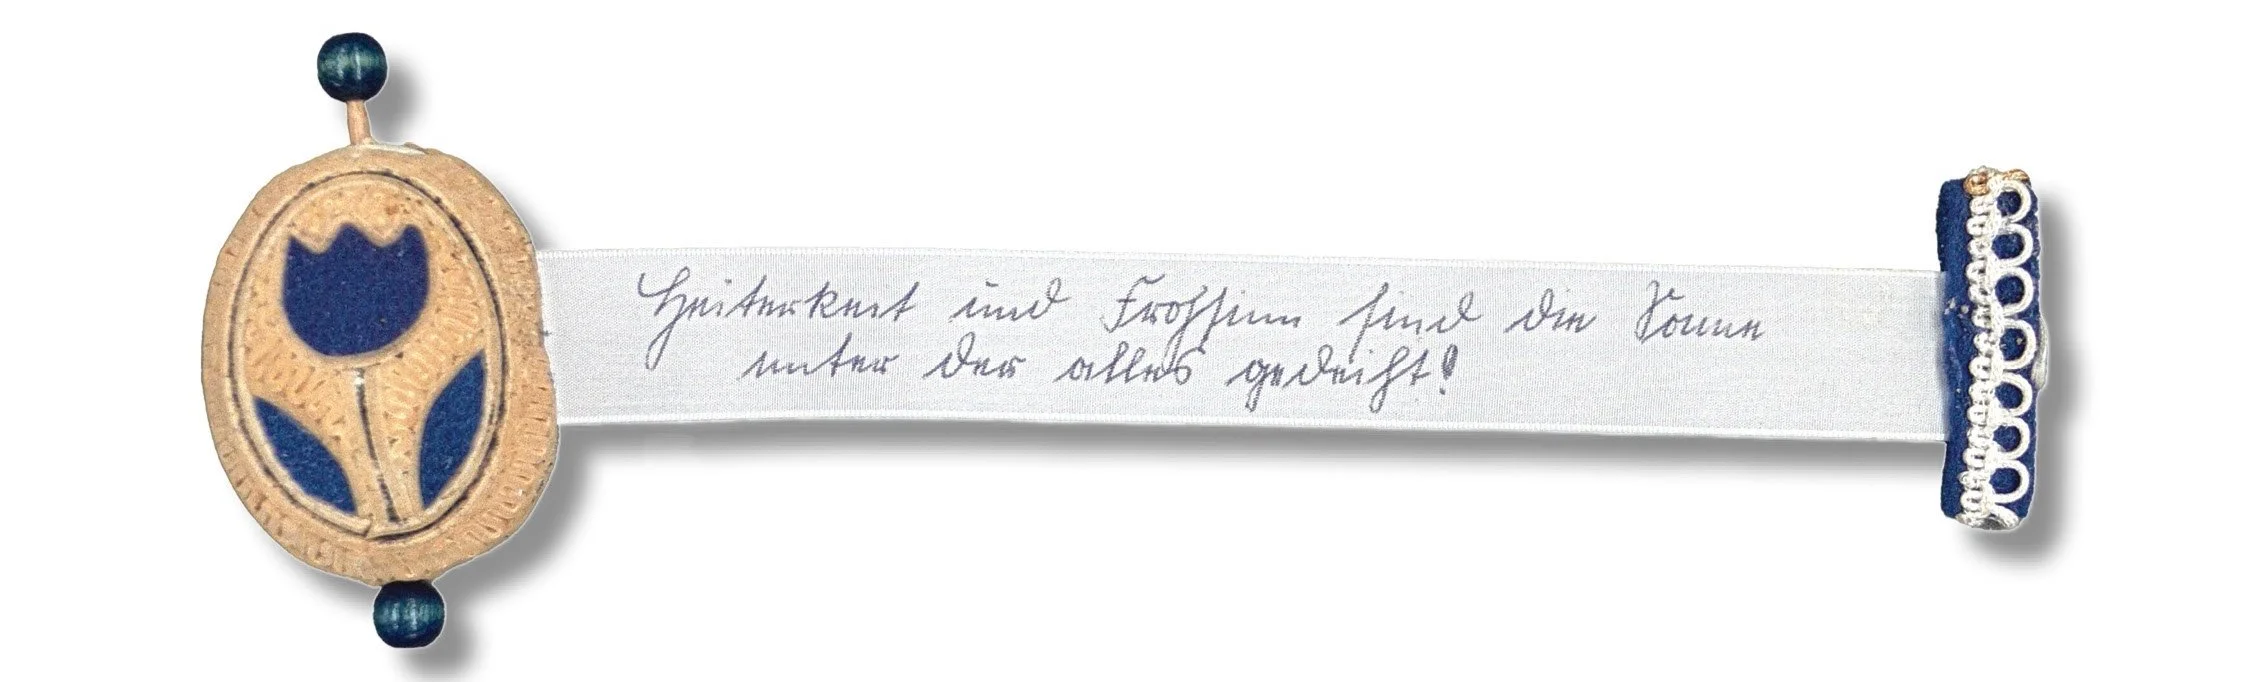 Heiterkeit und Frohsinn sind die Sonne
unter der alles gedeiht!